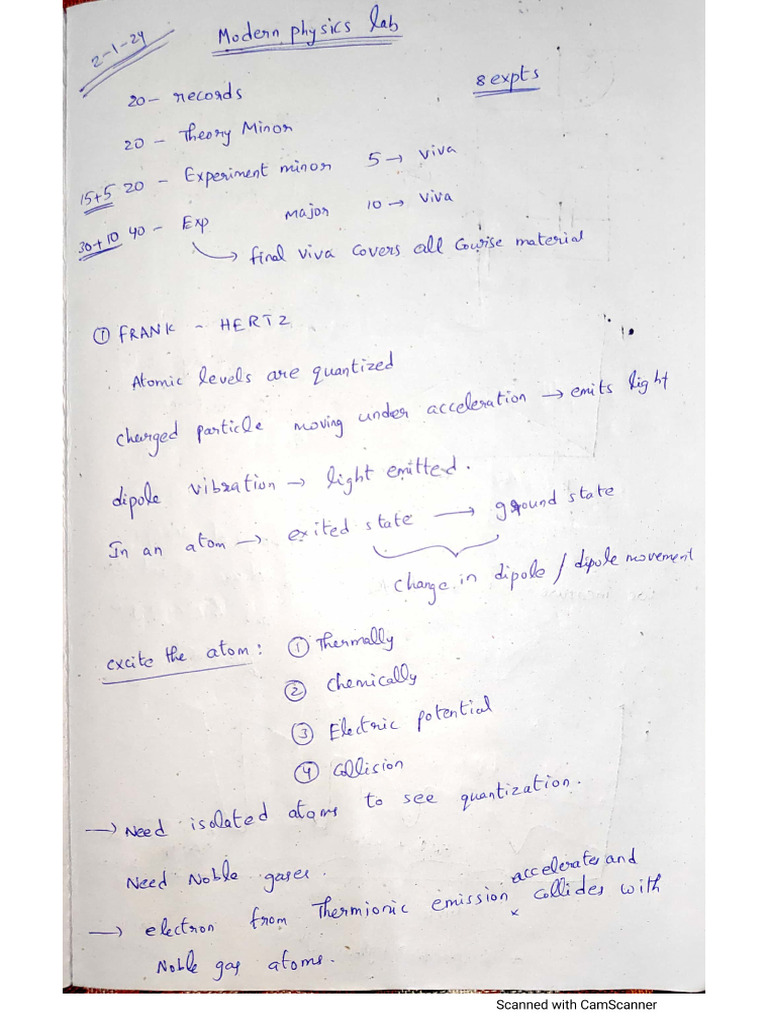 2-1-24
Modern physics lab
8 expts
20 - records
20 - Theory Minor
15+5 20 - Experiment minor 5 → viva
30+10 40 - Exp Major 10 → viva
↳ final viva covers all Course material
① FRANK - HERTZ
Atomic levels are quantized
charged particle moving under acceleration → emits light
dipole vibration → light emitted.
In an atom → exited state → ground state
change in dipole / dipole movement
excite the atom : ① Thermally
② Chemically
③ Electric potential
④ Collision
→ Need isolated atoms to see quantization.
Need Noble gases.
accelerates and
→ electron from Thermionic emission x collides with
Noble gas atoms.
Scanned with CamScanner